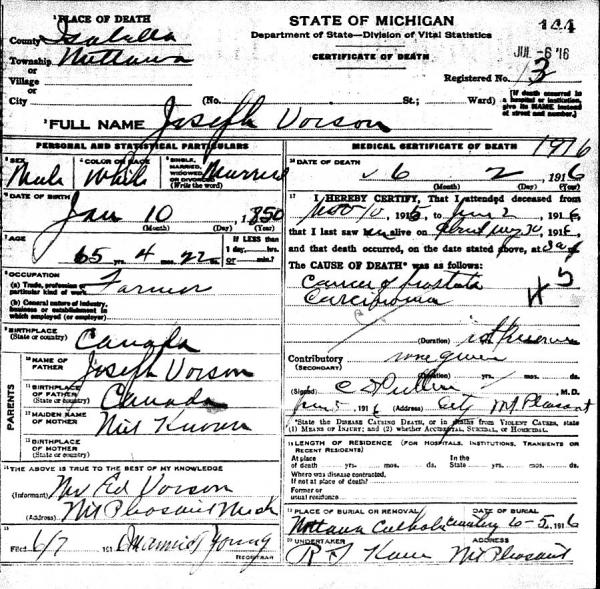 1 PLACE OF DEATH
County Isabella
Township Nottawa
or
Village
or
City
STATE OF MICHIGAN
Department of State—Division of Vital Statistics
CERTIFICATE OF DEATH
144
JUL -6 '16
Registered No. 3
(No. St.; Ward)
[If death occurred in a hospital or institution, give its NAME instead of street and number.]
2 FULL NAME Joseph Voison
PERSONAL AND STATISTICAL PARTICULARS
3 SEX
Male
4 COLOR OR RACE
White
5 SINGLE, MARRIED, WIDOWED OR DIVORCED
(Write the word)
Married
6 DATE OF BIRTH
Jan 10, 1850
(Month) (Day) (Year)
7 AGE
65 yrs. 4 mos. 22 ds.
If LESS than
1 day, hrs.
or min.?
8 OCCUPATION
(a) Trade, profession or particular kind of work
Farmer
(b) General nature of industry, business or establishment in which employed (or employer)
9 BIRTHPLACE
(State or country)
Canada
PARENTS
10 NAME OF FATHER
Joseph Voison
11 BIRTHPLACE OF FATHER
(State or country)
Canada
12 MAIDEN NAME OF MOTHER
Not Known
13 BIRTHPLACE OF MOTHER
(State or country)
14 THE ABOVE IS TRUE TO THE BEST OF MY KNOWLEDGE
(Informant) Mr Ed Voison
(Address) Mt Pleasant Mich
15
Filed 6/7 191 Young
REGISTRAR
MEDICAL CERTIFICATE OF DEATH
1916
16 DATE OF DEATH
6 2, 1916
(Month) (Day) (Year)
17 I HEREBY CERTIFY, That I attended deceased from
, 191 to June 2, 1916
that I last saw alive on , 1916,
and that death occurred, on the date stated above, at
The CAUSE OF DEATH* was as follows:
Cancer of prostate
Carcinoma
(Duration)
Contributory none given
(SECONDARY)
(Duration)
(Signed) M.D.
1916 (Address) City Mt Pleasant
*State the DISEASE CAUSING DEATH, or in deaths from VIOLENT CAUSES, state (1) MEANS OF INJURY; and (2) whether ACCIDENTAL, SUICIDAL, or HOMICIDAL.
18 LENGTH OF RESIDENCE (FOR HOSPITALS, INSTITUTIONS, TRANSIENTS OR RECENT RESIDENTS)
At place of death yrs. mos. ds. In the State yrs. mos. ds.
Where was disease contracted,
if not at place of death?
Former or usual residence
19 PLACE OF BURIAL OR REMOVAL DATE OF BURIAL
Nottawa Catholic 6-5, 1916
20 UNDERTAKER ADDRESS
Mt Pleasant